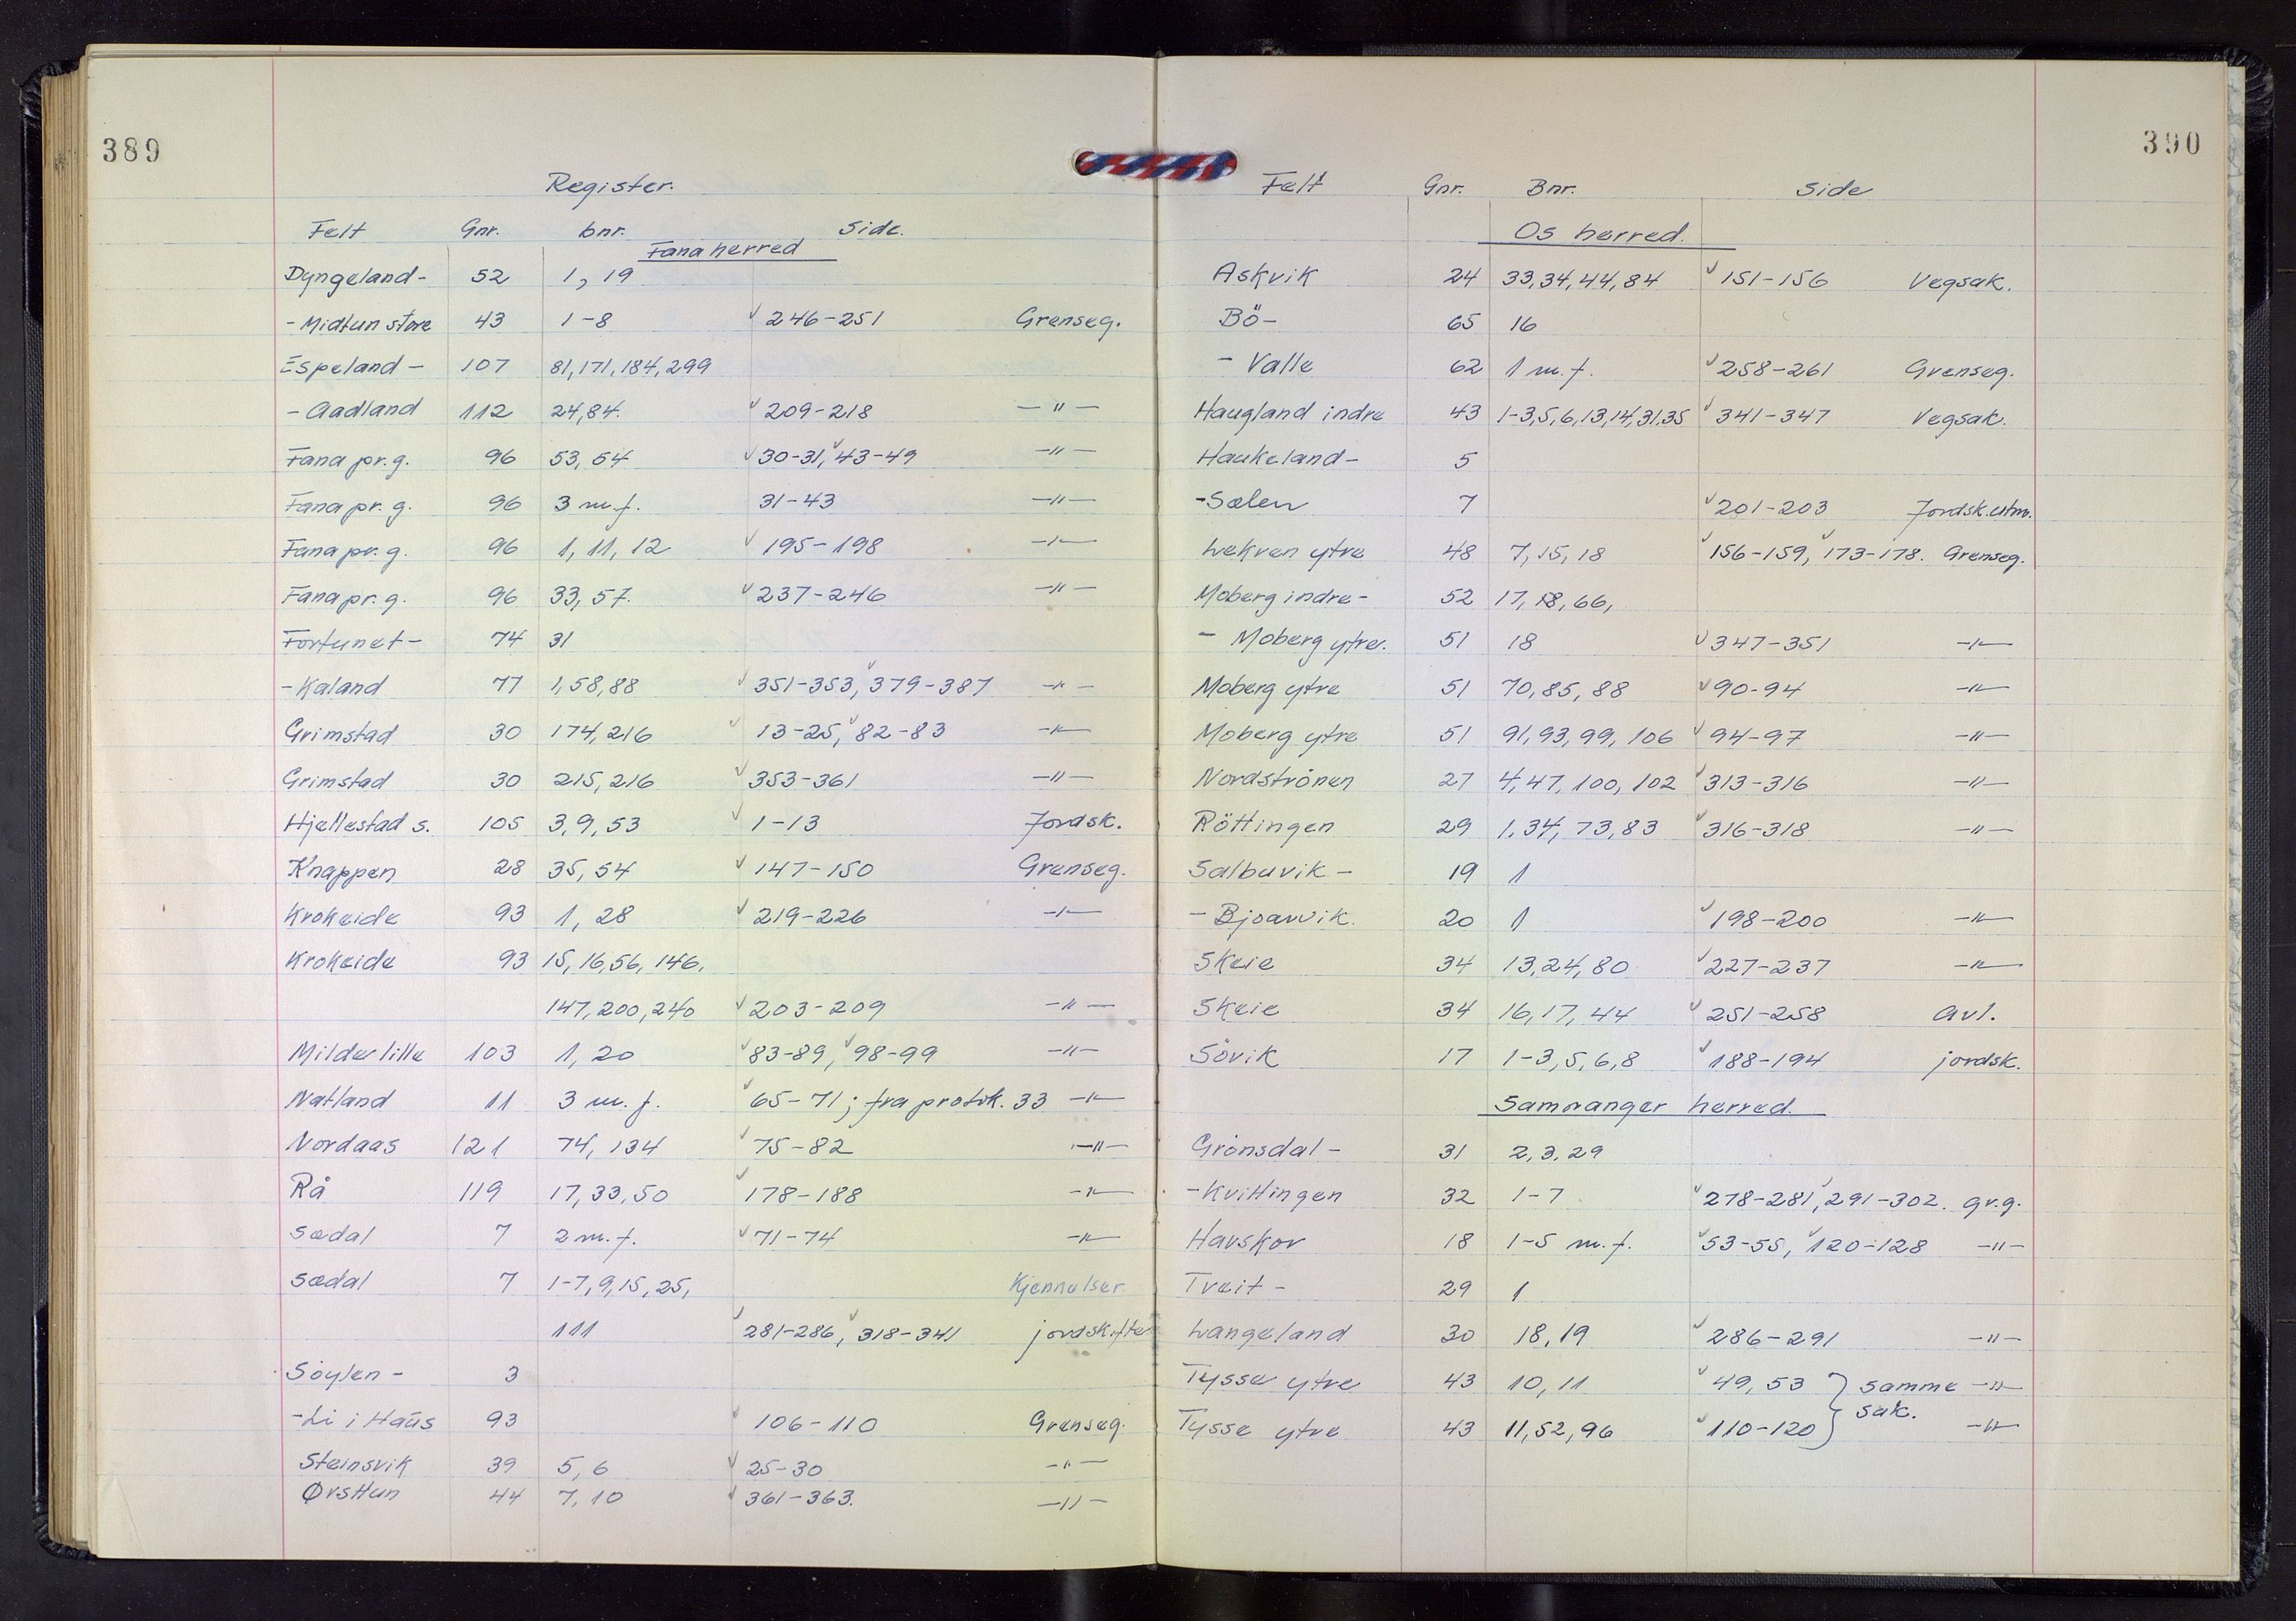 389
Register.
Felt Gnr. bnr. Side.
Fana herred
Dyngeland- 52 1, 19
- Midtun store 43 1-8 √ 246-251 Grenseg.
Espeland - 107 81, 171, 184, 299
- Aadland 112 24, 84. √ 209-218 — " —
Fana pr. g. 96 53, 54 √ 30-31, √ 43-49 — " —
Fana pr. g. 96 3 m. f. 31-43 — " —
Fana pr. g. 96 1, 11, 12 √ 195-198 — " —
Fana pr. g. 96 33, 57. √ 237-246 — " —
Fortunet - 74 31
- Kaland 77 1, 58, 88 √ 351-353, √ 379-387 — " —
Grimstad 30 174, 216 √ 13-25, √ 82-83 — " —
Grimstad 30 215, 216 √ 353-361 — " —
Hjellestad s. 105 3, 9, 53 √ 1-13 Jordsk.
Knappen 28 35, 54 √ 147-150 Grenseg.
Krokeide 93 1, 28 √ 219-226 — " —
Krokeide 93 15, 16, 56, 146,
147, 200, 240 √ 203-209 — " —
Milde lille 103 1, 20 √ 83-89, √ 98-99 — " —
Natland 11 3 m. f. √ 65-71; fra protok. 33 — " —
Nordaas 121 74, 134 √ 75-82 — " —
Rå 119 17, 33, 50 √ 178-188 — " —
Sædal 7 2 m. f. √ 71-74 — " —
Sædal 7 1-7, 9, 15, 25, Kjennelser
111 √ 281-286, √ 318-341 jordskifte
Söylen - 3
- Li i Haus 93 √ 106-110 Grenseg.
Steinsvik 39 5, 6 √ 25-30 — " —
Ørsttun 44 7, 10 √ 361-363. — " —
390
Felt Gnr. Bnr. Side
Os herred.
Askvik 24 33, 34, 44, 84 √ 151-156 Vegsak.
Bö- 65 16
- Valle 62 1 m. f. √ 258-261 Grenseg.
Haugland indre 43 1-3, 5, 6, 13, 14, 31, 35 √ 341-347 Vegsak.
Haukeland - 5
- Sælen 7 √ 201-203 Jordsk. utm.
Lekven ytre 48 7, 15, 18 √ 156-159, √ 173-178. Grenseg.
Moberg indre - 52 17, 18, 66,
- Moberg ytre. 51 18 √ 347-351 — " —
Moberg ytre 51 70, 85, 88 √ 90-94 — " —
Moberg ytre 51 91, 93, 99, 106 √ 94-97 — " —
Nordströnen 27 4, 47, 100, 102 √ 313-316 — " —
Röttingen 29 1, 34, 73, 83 √ 316-318 — " —
Salbuvik - 19 1
- Bjoarvik. 20 1 √ 198-200 — " —
Skeie 34 13, 24, 80 √ 227-237 — " —
Skeie 34 16, 17, 44 √ 251-258 Avl.
Sövik 17 1-3, 5, 6, 8 √ 188-194 jordsk.
Samnanger herred.
Grönsdal - 31 2, 3, 29
- Kvittingen 32 1-7 √ 278-281, √ 291-302. gr.g.
Havskor 18 1-5 m. f. √ 53-55, √ 120-128 — " —
Tveit - 29 1
Langeland 30 18, 19 √ 286-291 — " —
Tysse ytre 43 10, 11 √ 49, 53 } samme — " —
sak.
Tysse ytre 43 11, 52, 96 √ 110-120 } — " —